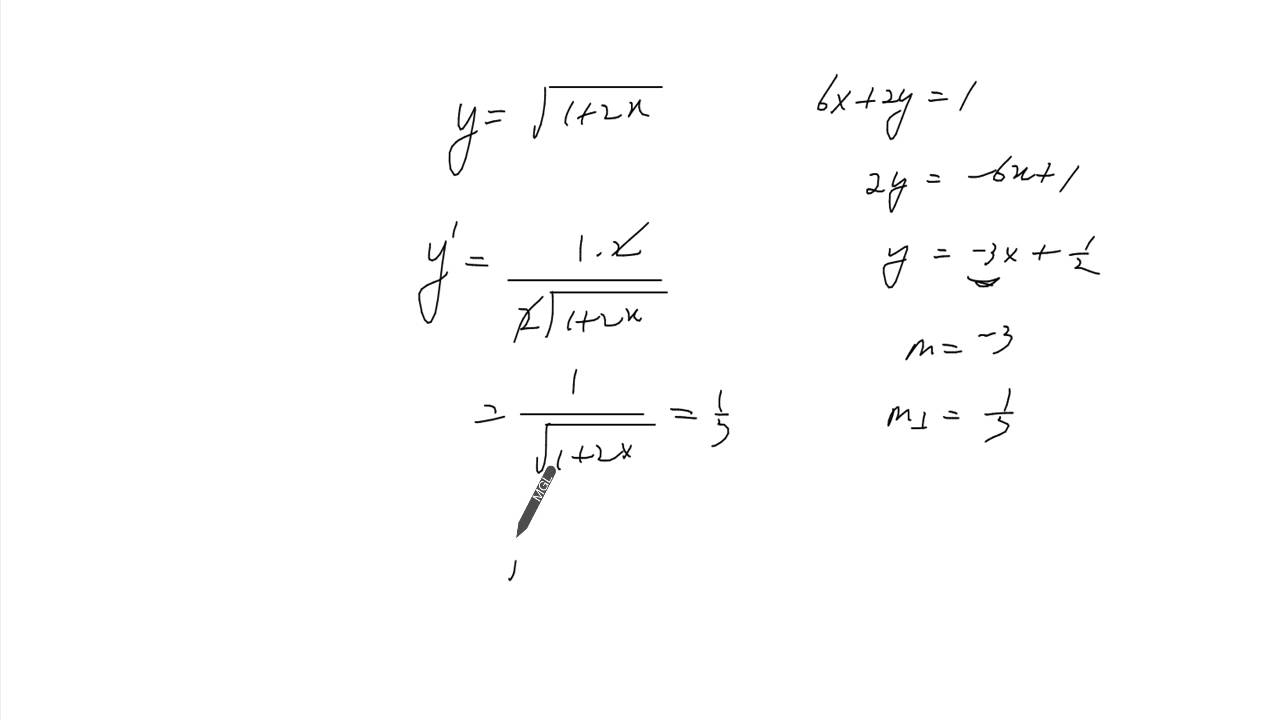 y = √(1+2x)
y' = (1·2)/(2√(1+2x))
= 1/√(1+2x) = 1/3
MGL
6x+2y = 1
2y = -6x+1
y = -3x + 1/2
m = -3
m⊥ = 1/3